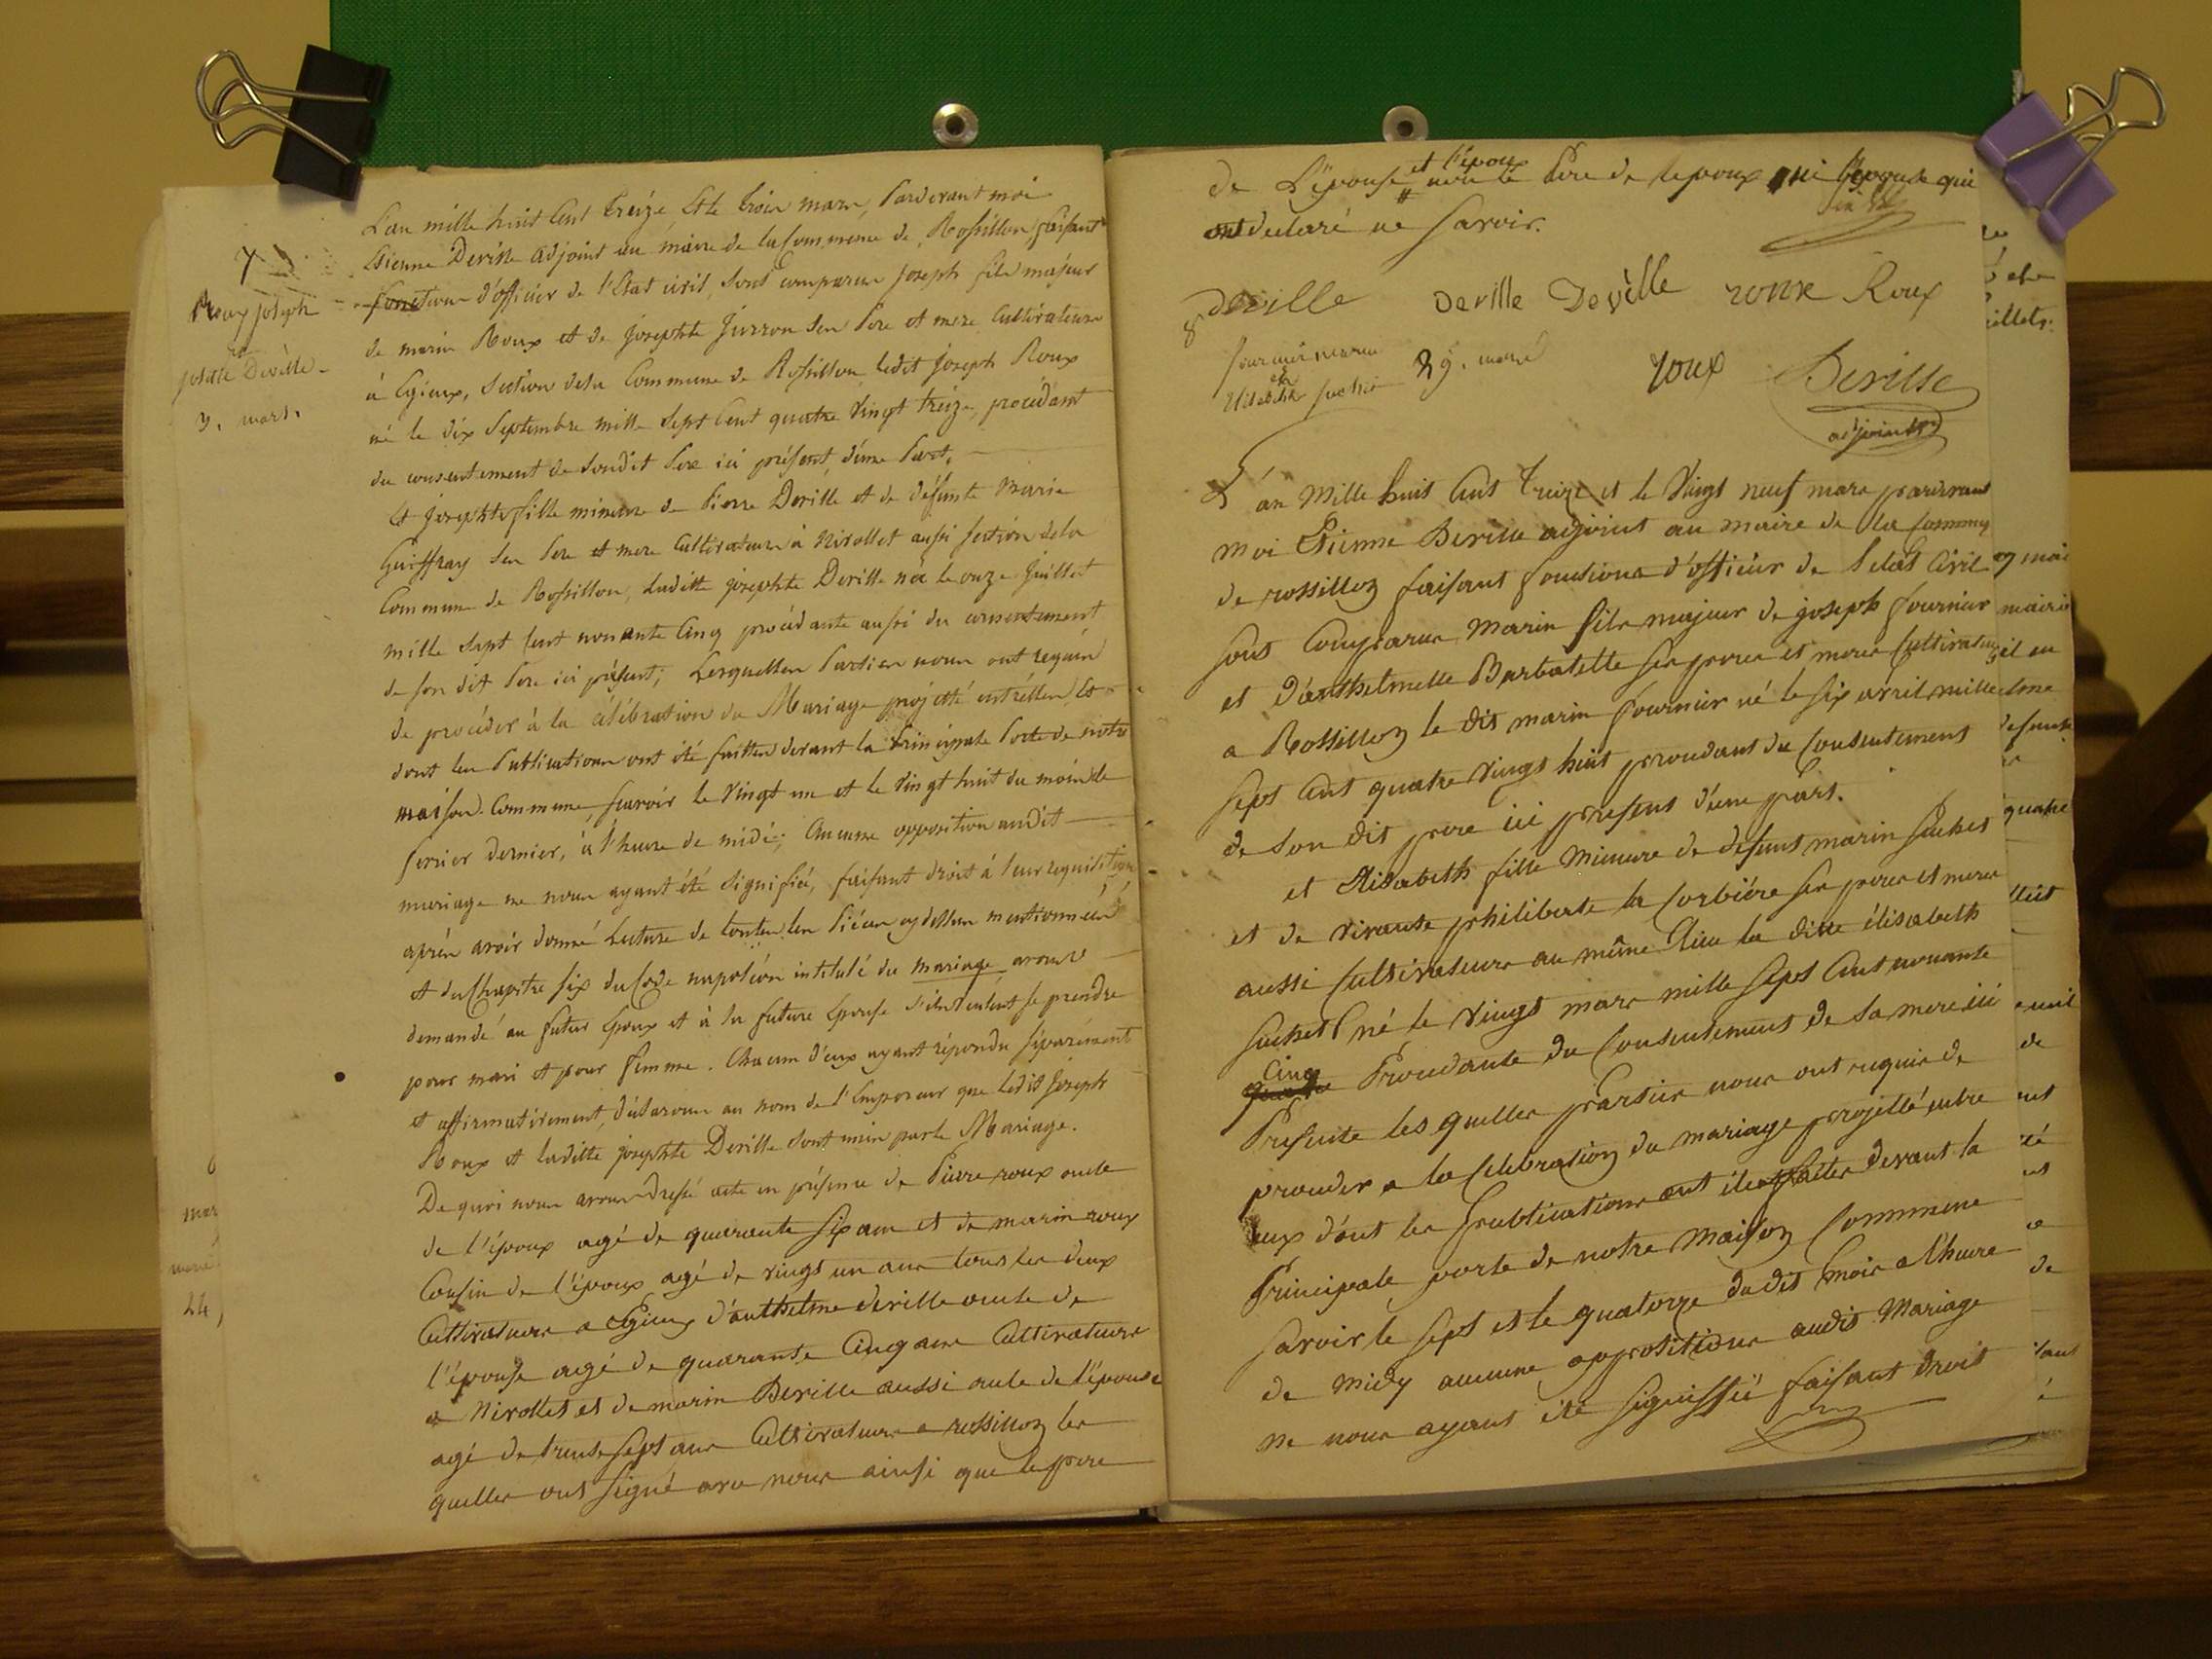 7
Roux joseph
et
josète Deville
3. mars.
L'an mille huit Cent treize Et le trois mars, Pardevant moi
Etienne Deville adjoint au maire de la Commune de Rossillon faisant
fonctions d'officier de l'Etat civil, sont comparus joseph fils majeur
de marin Roux et de josephte Juvron ses Pere et mere Cultivateurs
à Egieux, Section de la Commune de Rossillon ledit joseph Roux
né le dix Septembre mille sept Cent quatre Vingt treize, procédant
du consentement de sondit Pere ici présent, d'une Part.
Et josephte fille mineure de Pierre Deville et de défunte Marie
Guiffray ses Pere et mere Cultivateurs à Virollet aussi section de la
Commune de Rossillon, Laditte josephte Deville née le onze Juillet
mille Sept Cent nonante Cinq procédante aussi du consentement
de son dit Pere ici présent; Lesquelles Parties nous ont requis
de procéder à la célébration du Mariage projetté entr'elles, Et
dont les Publications ont été faittes devant la Principale Porte de notre
maison Commune, Savoir le Vingt un et le Vingt huit du mois de
fevrier dernier, à l'heure de midi; Aucune opposition audit
mariage ne nous ayant été signifiée, faisant droit à leur requisition
après avoir donné Lecture de toutes les Piéces cydessus mentionnées
et du Chapitre six du Code napoléon intitulé du mariage avons
demandé au futur Epoux et à la future Epouse s'ils veulent se prendre
pour mari et pour femme. Chacun d'eux ayant répondu séparément
et affirmativement, déclarons au nom de l'Empereur que ledit Joseph
Roux et laditte josephte Deville sont unis par le Mariage.
De quoi nous avons dressé acte en présence de Pierre roux oncle
de l'époux agé de quarante six ans et de marin roux
Cousin de l'époux agé de vingt un ans tous les deux
Cultivateurs a Egieux d'anthelme deville oncle de
l'épouse agé de quarante Cinq ans Cultivateurs
a Virollet et de marin Deville aussi oncle de l'épouse
agé de trente sept ans Cultivateurs a rossillon les
quelles ont signé avec nous ainsi que le pere
de L'épouse et l'époux non le Pere de l'epoux ni l'épouse qui
ont declaré ne Savoir.
deville Deville Devville roux Roux
8
fournier marin
et
Elisabeth suchet
29. mars
roux Deville
adjoint
L'an Mille huit Cent treize et le Vingt neuf mars pardevant
moi Etienne Deville adjoint au maire de la Commune
de rossillon faisant fonctions d'officier de l'etat Civil
sont Comparus marin fils majeur de joseph fournier
et d'anthelmette Barbatette ses peres et meres Cultivateurs
a Rossillon le dit marin fournier né le six avril mille
sept Cent quatre vingt huit procedant du Consentement
de son dit pere ici present d'une part.
et Elisabeth fille mineure de defunt marin suchet
et de vivante philiberte la Corbiére ses peres et meres
aussi Cultivateurs au même lieu la ditte élisabeth
suchet né le vingt mars mille sept Cent nonante
Cinq
quatre Procedante du Consentement de sa mere ici
Presente les quelles Parties nous ont requis de
proceder a la Celebration du mariage projetté entre
eux dont les Publications ont étés faites devant la
Principale porte de notre maison Commune
savoir le sept et le quatorze du dit mois a l'heure
de midy aucune oppositions audit Mariage
ne nous ayant été signiffié faisant droit